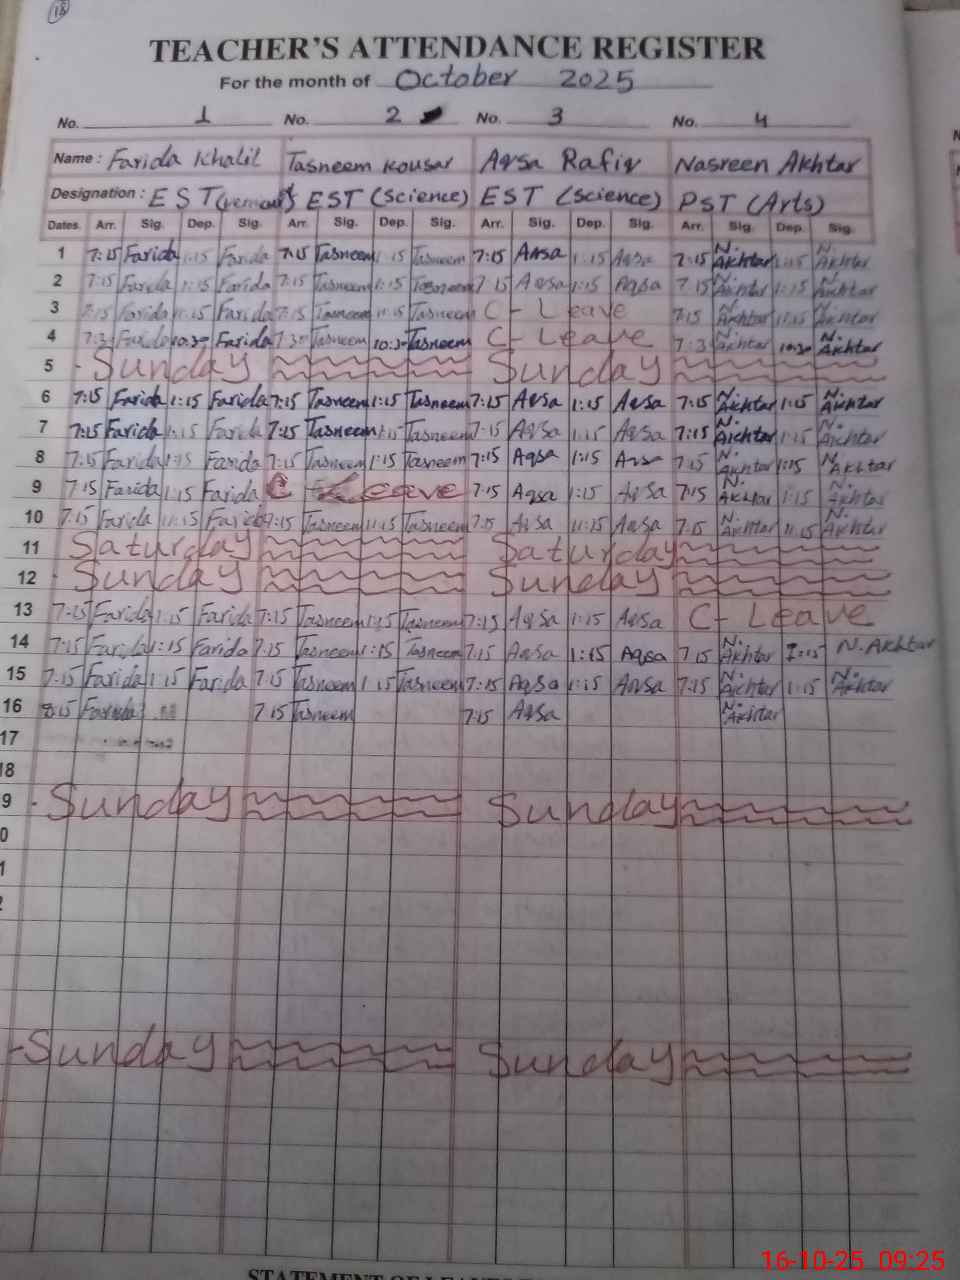 18
TEACHER'S ATTENDANCE REGISTER
For the month of October 2025
No. 1 No. 2 No. 3 No. 4
Name : Farida Khalil Tasneem Kousar Aqsa Rafiq Nasreen Akhtar
Designation : EST EST (Science) EST (Science) PST (Arts)
Dates. Arr. Sig. Dep. Sig. Arr. Sig. Dep. Sig. Arr. Sig. Dep. Sig. Arr. Sig. Dep. Sig.
1 7:15 Farida 1:15 Farida 7:15 Tasneem 1:15 Tasneem 7:15 Aqsa 1:15 Aqsa 7:15 N. Akhtar 1:15 N. Akhtar
2 7:15 Farida 1:15 Farida 7:15 Tasneem 1:15 Tasneem 7:15 Aqsa 1:15 Aqsa 7:15 N. Akhtar 1:15 N. Akhtar
3 7:15 Farida 11:15 Farida 7:15 Tasneem 11:15 Tasneem C- Leave 7:15 N. Akhtar 11:15 N. Akhtar
4 7:30 Farida 10:30 Farida 7:30 Tasneem 10:30 Tasneem C- Leave 7:3 N. Akhtar 10:30 N. Akhtar
5 - Sunday Sunday
6 7:15 Farida 1:15 Farida 7:15 Tasneem 1:15 Tasneem 7:15 Aqsa 1:15 Aqsa 7:15 N. Akhtar 1:15 N. Akhtar
7 7:15 Farida 1:15 Farida 7:15 Tasneem 1:15 Tasneem 7:15 Aqsa 1:15 Aqsa 7:15 N. Akhtar 1:15 N. Akhtar
8 7:15 Farida 1:15 Farida 7:15 Tasneem 1:15 Tasneem 7:15 Aqsa 1:15 Aqsa 7:15 N. Akhtar 1:15 N. Akhtar
9 7:15 Farida 1:15 Farida C Leave 7:15 Aqsa 1:15 Aqsa 7:15 N. Akhtar 1:15 N. Akhtar
10 7:15 Farida 11:15 Farida 7:15 Tasneem 11:15 Tasneem 7:15 Aqsa 11:15 Aqsa 7:15 N. Akhtar 11:15 N. Akhtar
11 Saturday Saturday
12 - Sunday Sunday
13 7:15 Farida 1:15 Farida 7:15 Tasneem 1:15 Tasneem 7:15 Aqsa 1:15 Aqsa C- Leave
14 7:15 Farida 1:15 Farida 7:15 Tasneem 1:15 Tasneem 7:15 Aqsa 1:15 Aqsa 7:15 N. Akhtar 1:15 N. Akhtar
15 7:15 Farida 1:15 Farida 7:15 Tasneem 1:15 Tasneem 7:15 Aqsa 1:15 Aqsa 7:15 N. Akhtar 1:15 N. Akhtar
16 8:15 Farida 7:15 Tasneem 7:15 Aqsa N. Akhtar
17
18
9 - Sunday Sunday
0
1
2
- Sunday Sunday
16-10-25 09:25